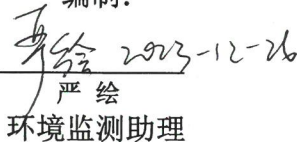 编制:
严绘 2023-12-26
严 绘
环境监测助理